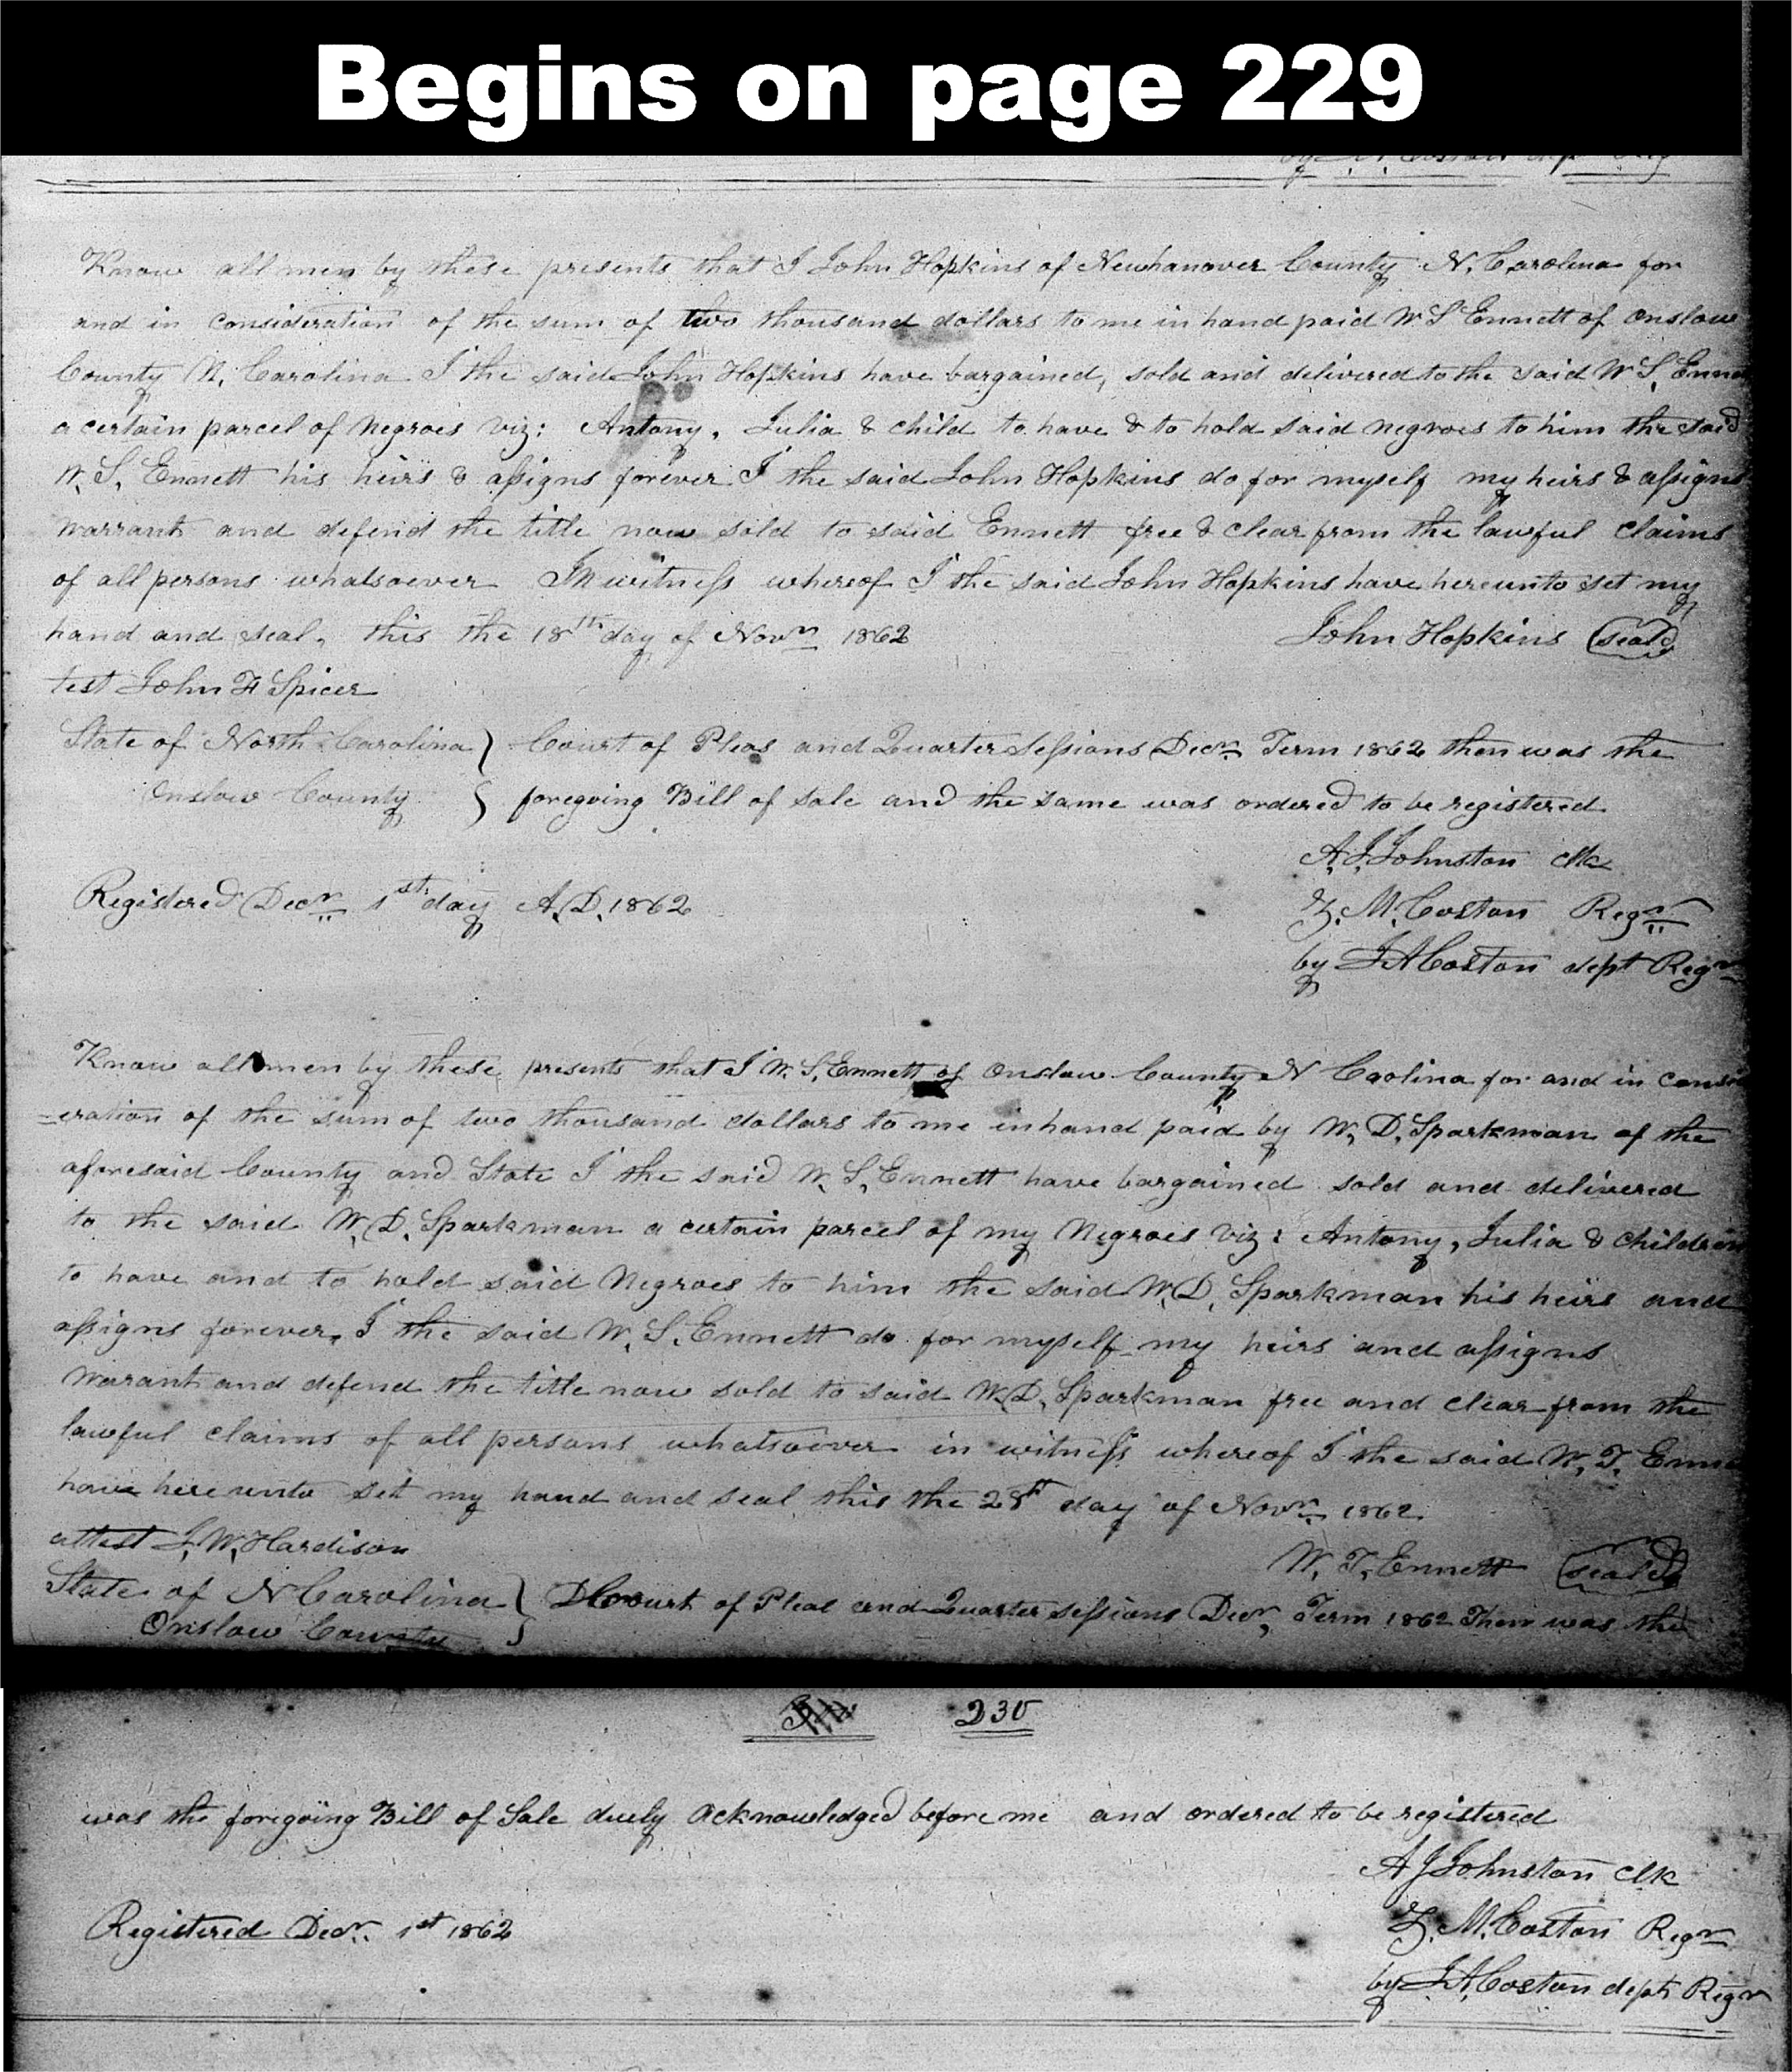 Begins on page 229
Know all men by these presents that I John Hopkins of Newhanover County N. Carolina for
and in consideration of the sum of two thousand dollars to me in hand paid W S Ennett of Onslow
County N. Carolina I the said John Hopkins have bargained, sold and delivered to the said W S, Enne
a certain parcel of Negroes viz: Antony, Julia & child to have & to hold said negroes to him the said
W. S. Ennett his heirs & assigns forever I the said John Hopkins do for myself my heirs & assigns
warrant and defend the title now sold to said Ennett free & clear from the lawful claims
of all persons whatsoever In witness whereof I the said John Hopkins have hereunto set my
hand and seal, this the 18th day of Novr 1862 John Hopkins (seal)
test John F Spicer
State of North Carolina } Court of Pleas and Quarter Sessions Decr Term 1862 then was the
Onslow County } foregoing Bill of sale and the same was ordered to be registered
A. J. Johnston clk
Registered Decr 1st day A.D. 1862
Z. M. Coston Regr
by J A Coston dept Regr
Know all men by these presents that I W. S. Ennett of Onslow County N Caolina for and in consi
=eration of the sum of two thousand dollars to me in hand paid by W. D. Sparkman of the
aforesaid County and State I the said W. S. Ennett have bargained sold and delivered
to the said W. D. Sparkman a certain parcel of my Negroes viz: Antony, Julia & children
to have and to hold said Negroes to him the said W. D. Sparkman his heirs and
assigns forever, I the said W. S. Ennett do for myself my heirs and assigns
warant and defend the title now sold to said W. D. Sparkman free and clear from the
lawful claims of all persons whatsoever in witness whereof I the said W. T. Enne
have hereunto set my hand and seal this the 28th day of Novr 1862
attest J. W. Hardison
W. T. Ennett (seal)
State of N Carolina } Court of Pleas and Quarter sessions Decr, Term 1862 Then was the
Onslow County }
230
was the foregoing Bill of Sale duely Acknowledged before me and ordered to be registered
A J Johnston clk
Registered Decr 1st 1862
Z. M. Coston Regr
by J. A. Coston dept Regr